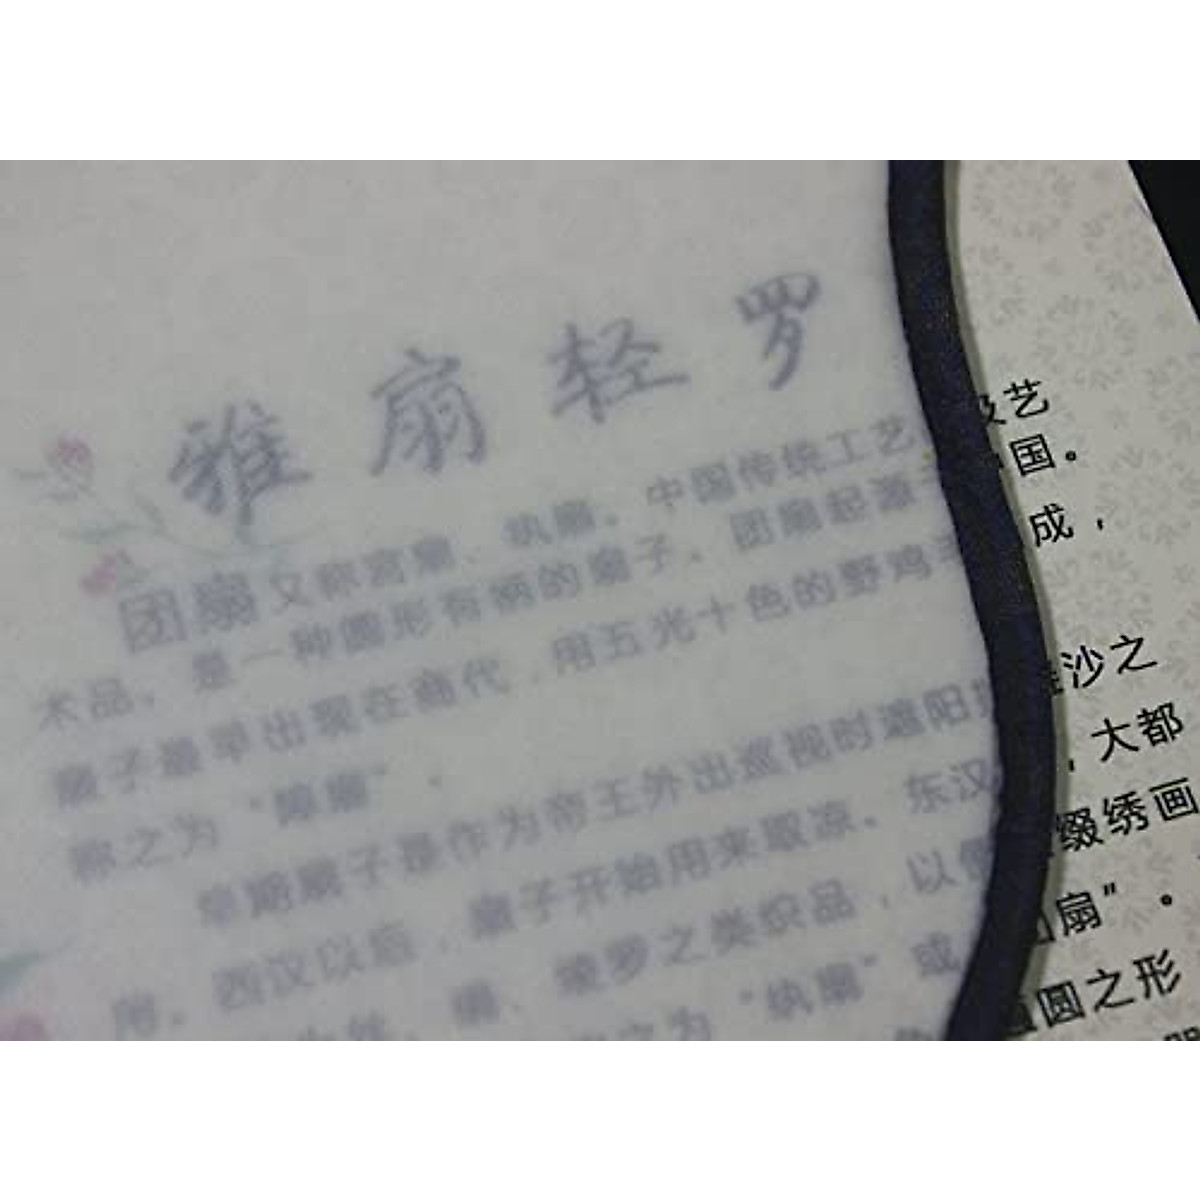 雅扇轻罗
团扇又称宫扇、纨扇。中国传统工艺 及艺
术品，是一种圆形有柄的扇子。团扇起源于中国。
扇子最早出现在商代，用五光十色的野鸡 成，
称之为“障扇”。
早期扇子是作为帝王外出巡视时遮阳 沙之
用。西汉以后，扇子开始用来取凉。东汉 ，大都
绫罗之类织品，以 缀绣画
之为“纨扇”或 扇”。
圆之形